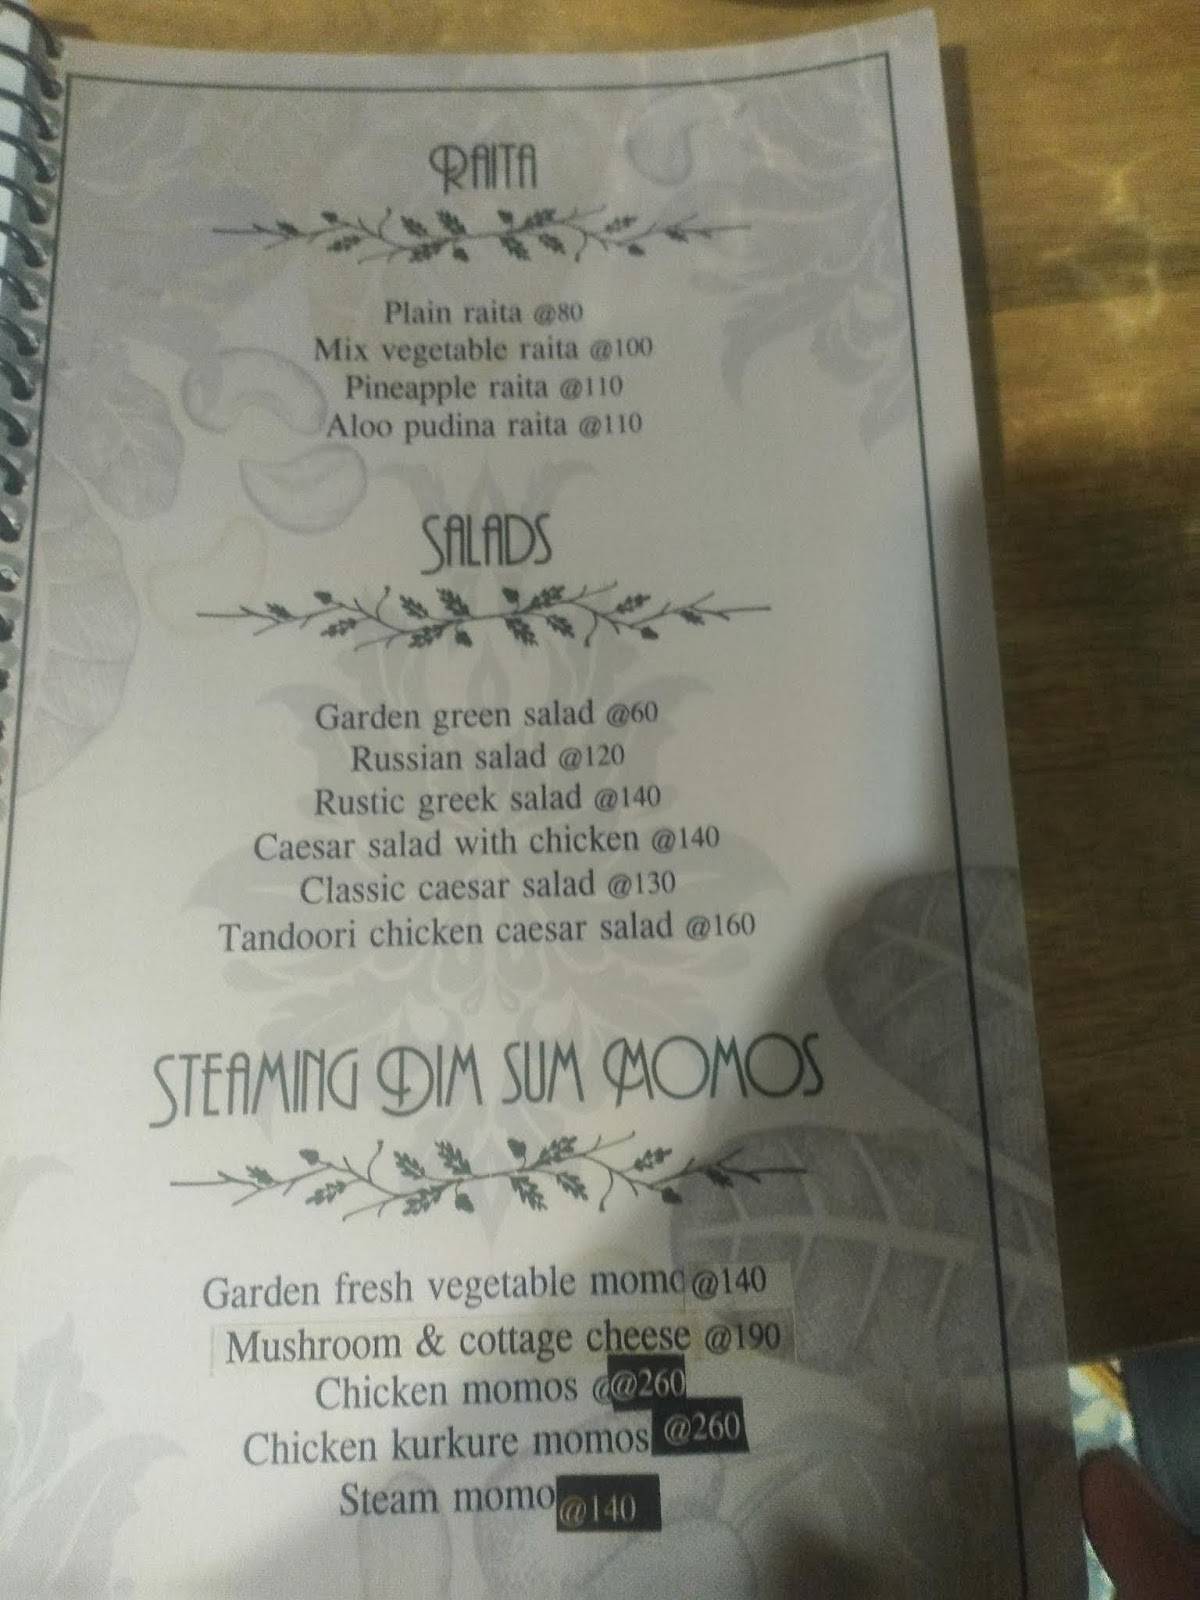 RAITA
Plain raita @80
Mix vegetable raita @100
Pineapple raita @110
Aloo pudina raita @110
SALADS
Garden green salad @60
Russian salad @120
Rustic greek salad @140
Caesar salad with chicken @140
Classic caesar salad @130
Tandoori chicken caesar salad @160
STEAMING DIM SUM MOMOS
Garden fresh vegetable momo @140
Mushroom & cottage cheese @190
Chicken momos @@260
Chicken kurkure momos @260
Steam momo @140